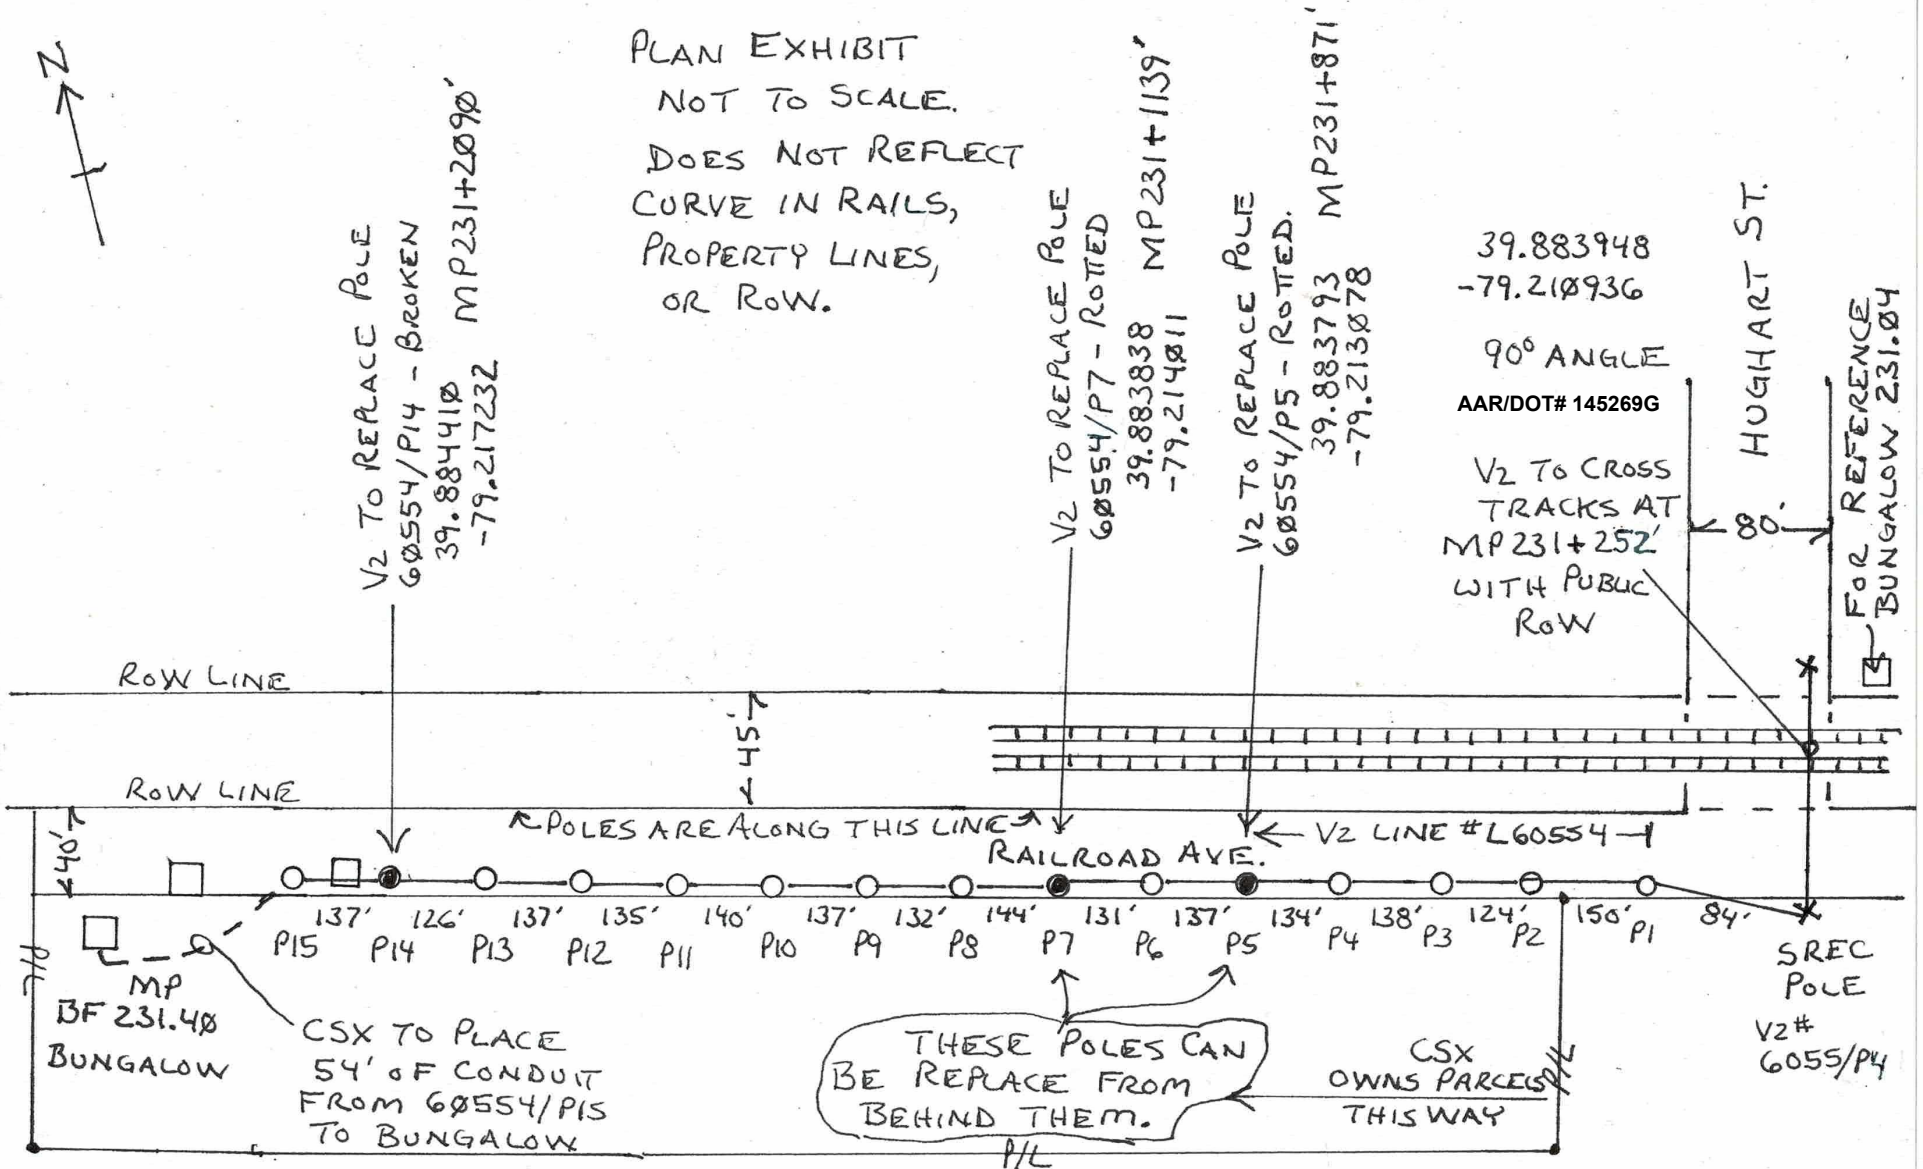 N
PLAN EXHIBIT
NOT TO SCALE.
DOES NOT REFLECT
CURVE IN RAILS,
PROPERTY LINES,
OR ROW.
V2 TO REPLACE POLE
6Ø554/P14 - BROKEN
39.88441Ø
-79.217232
MP231+2Ø9Ø'
V2 TO REPLACE POLE
6Ø554/P7 - ROTTED
39.883838
-79.214Ø11
MP231+1139'
V2 TO REPLACE POLE
6Ø554/P5 - ROTTED.
39.883793
-79.213Ø78
MP231+871'
39.883948
-79.21Ø936
90° ANGLE
AAR/DOT# 145269G
V2 TO CROSS
TRACKS AT
MP 231+252'
WITH PUBLIC
ROW
HUGHART ST.
80'
FOR REFERENCE
BUNGALOW 231.Ø4
ROW LINE
45'
ROW LINE
40'
POLES ARE ALONG THIS LINE
V2 LINE #L60554
RAILROAD AVE.
137' 126' 137' 135' 140' 137' 132' 144' 131' 137' 134' 138' 124' 150' 84'
P15 P14 P13 P12 P11 P10 P9 P8 P7 P6 P5 P4 P3 P2 P1
P/L
MP
BF 231.4Ø
BUNGALOW
CSX TO PLACE
54' OF CONDUIT
FROM 6Ø554/P15
TO BUNGALOW
THESE POLES CAN
BE REPLACE FROM
BEHIND THEM.
CSX
OWNS PARCELS
THIS WAY
P/L
SREC
POLE
V2#
6055/P4
P/L